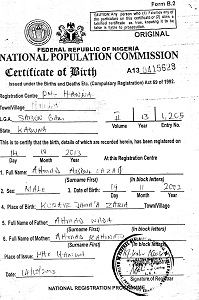 Form B.2
Any person who (1) falsifies any of
the particulars on this certificate or (2) uses a
falsified certificate as true, knowing it to be
false is liable to prosecution.
ORIGINAL
FEDERAL REPUBLIC OF NIGERIA
NATIONAL POPULATION COMMISSION
Certificate of Birth
A13 0415629
Issued under the Births and Deaths Etc. (Compulsory Registration) Act 69 of 1992.
Registration Centre PHC HANWA
Town/Village HANWA
L.G.A. SABON GARI II 13 1,205
State KADUNA Volume Year Entry No.
This is to certify that the birth, details of which are recorded herein, was registered on
2013
Day Month Year At this Registration Centre
1. Full Name: AHMAD
(Surname First) (In block letters)
2. Sex: MALE 3. Date of Birth: 14 11 2002
Day Month Year
4. Place of Birth: ZARIA Town/Village
5. Full Name of Father: AHMAD
(Surname First) (In block letters)
6. Full Name of Mother: AHMAD
(Surname First) (In block letters)
Place of Issue: PHC HANWA
Date
Signature of Registrar
NATIONAL REGISTRATION PROGRAMME